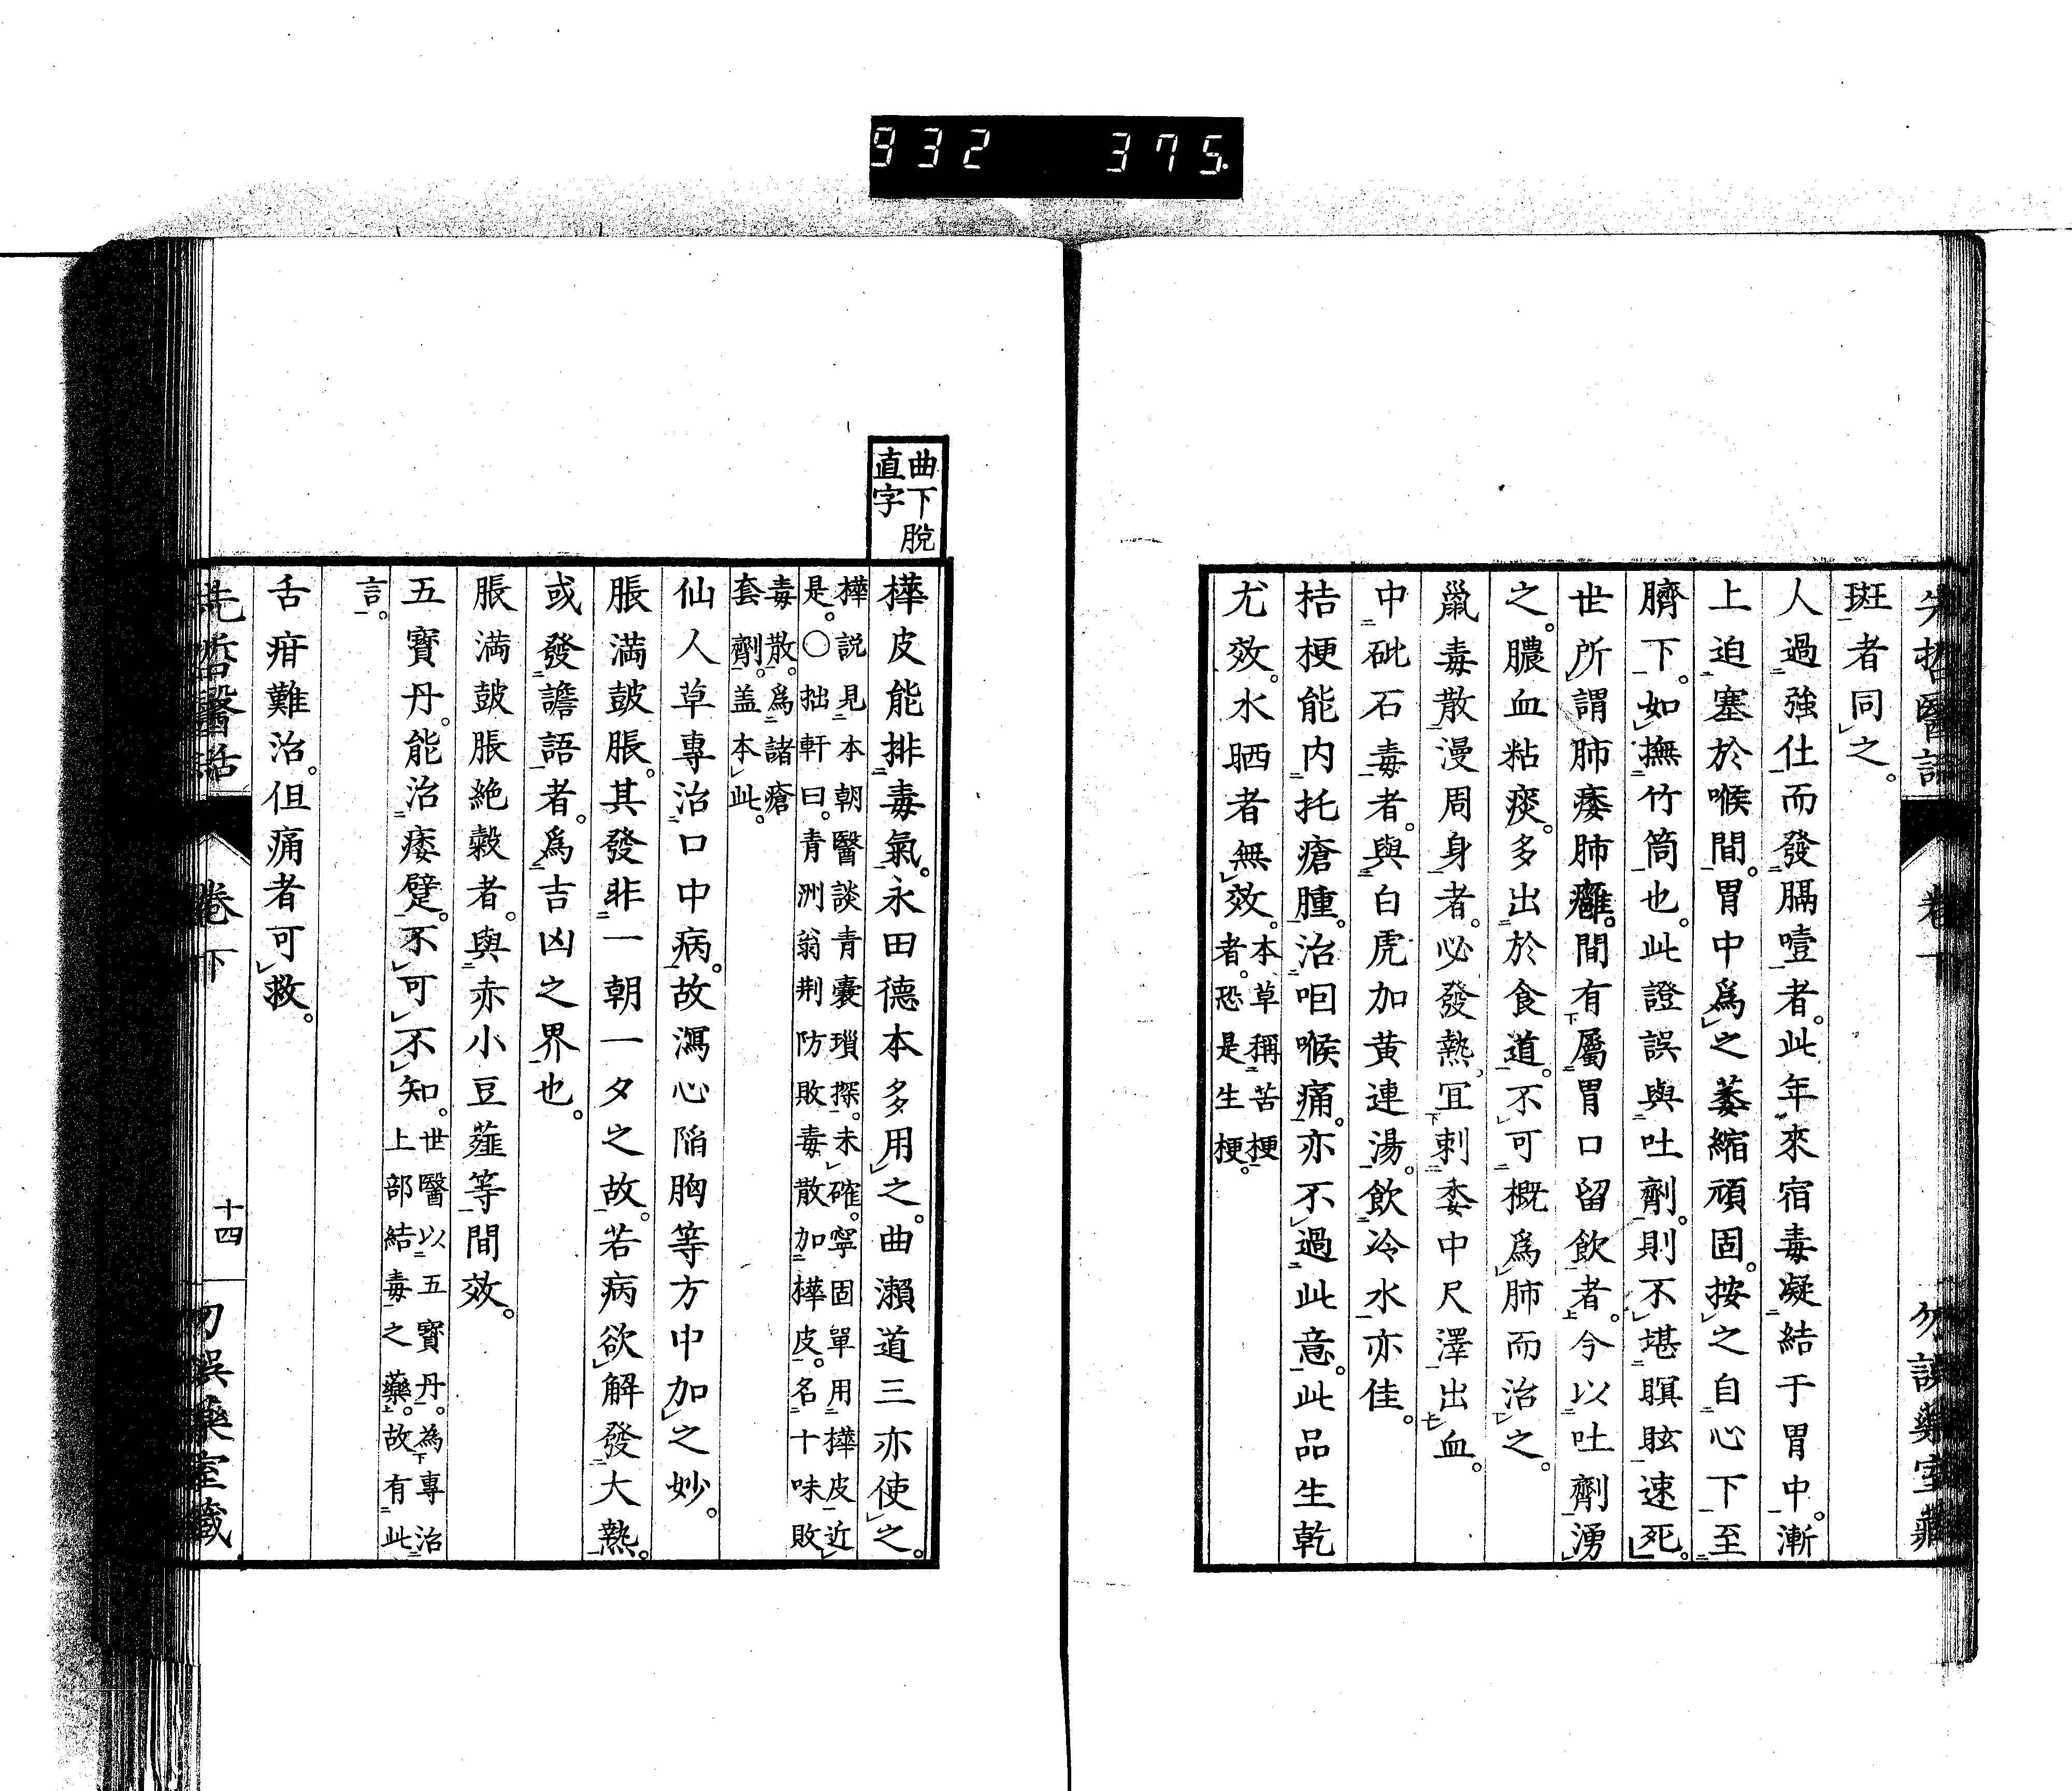 932 375.
先哲醫話 卷下 勿誤藥室藏
斑者同之。
人過強仕而發膈噎者。此年來宿毒凝結于胃中。漸
上迫塞於喉間。胃中爲之萎縮頑固。按之自心下至
臍下。如撫竹筒也。此證誤與吐劑。則不堪瞑眩速死。
世所謂肺痿肺癰。間有屬胃口留飲者。今以吐劑湧
之。膿血粘痰。多出於食道。不可概爲肺而治之。
巤毒散漫周身者。必發熱。宜刺委中尺澤出血。
中砒石毒者。與白虎加黃連湯。飲冷水亦佳。
桔梗能内托瘡腫。治咽喉痛。亦不過此意。此品生乾
尤效。水晒者無效。本草稱苦梗
者。恐是生梗。
曲下脫
直字
樺皮能排毒氣。永田德本多用之。曲瀨道三亦使之。
樺説見本朝醫談青囊瑣探。未確。寧固單用樺皮近
是。○拙軒曰。青洲翁荆防敗毒散加樺皮。名十味敗
毒散。爲諸瘡
套劑。盖本此。
仙人草專治口中病。故瀉心陷胸等方中加之妙。
脹満皷脹。其發非一朝一夕之故。若病欲解發大熱。
或發譫語者。爲吉凶之界也。
脹満皷脹絶穀者。與赤小豆薤等間效。
五寶丹。能治痿躄。不可不知。世醫以五寳丹。為專治
上部結毒之藥。故有此
言。
舌疳難治。但痛者可救。
先哲醫話 卷下 十四 勿誤藥室藏